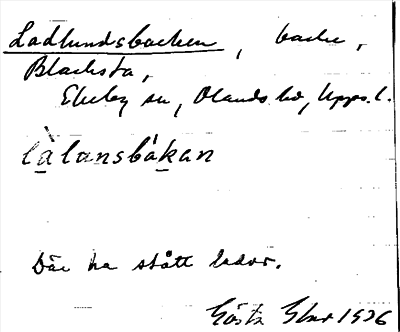 Ladlundsbacken, backe,
Blacksta,
Ekeby sn, Olands hd, Upps. l.
làlunsbákan
Där ha stått lador.
Gösta 1926